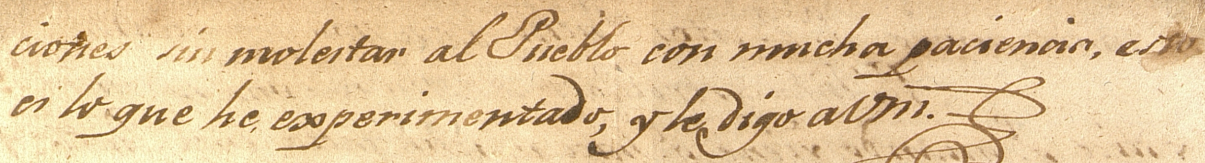 ciones sin molestar al Pueblo con mucha paciencia, esto
es lo que he experimentado, y le digo a Vm.